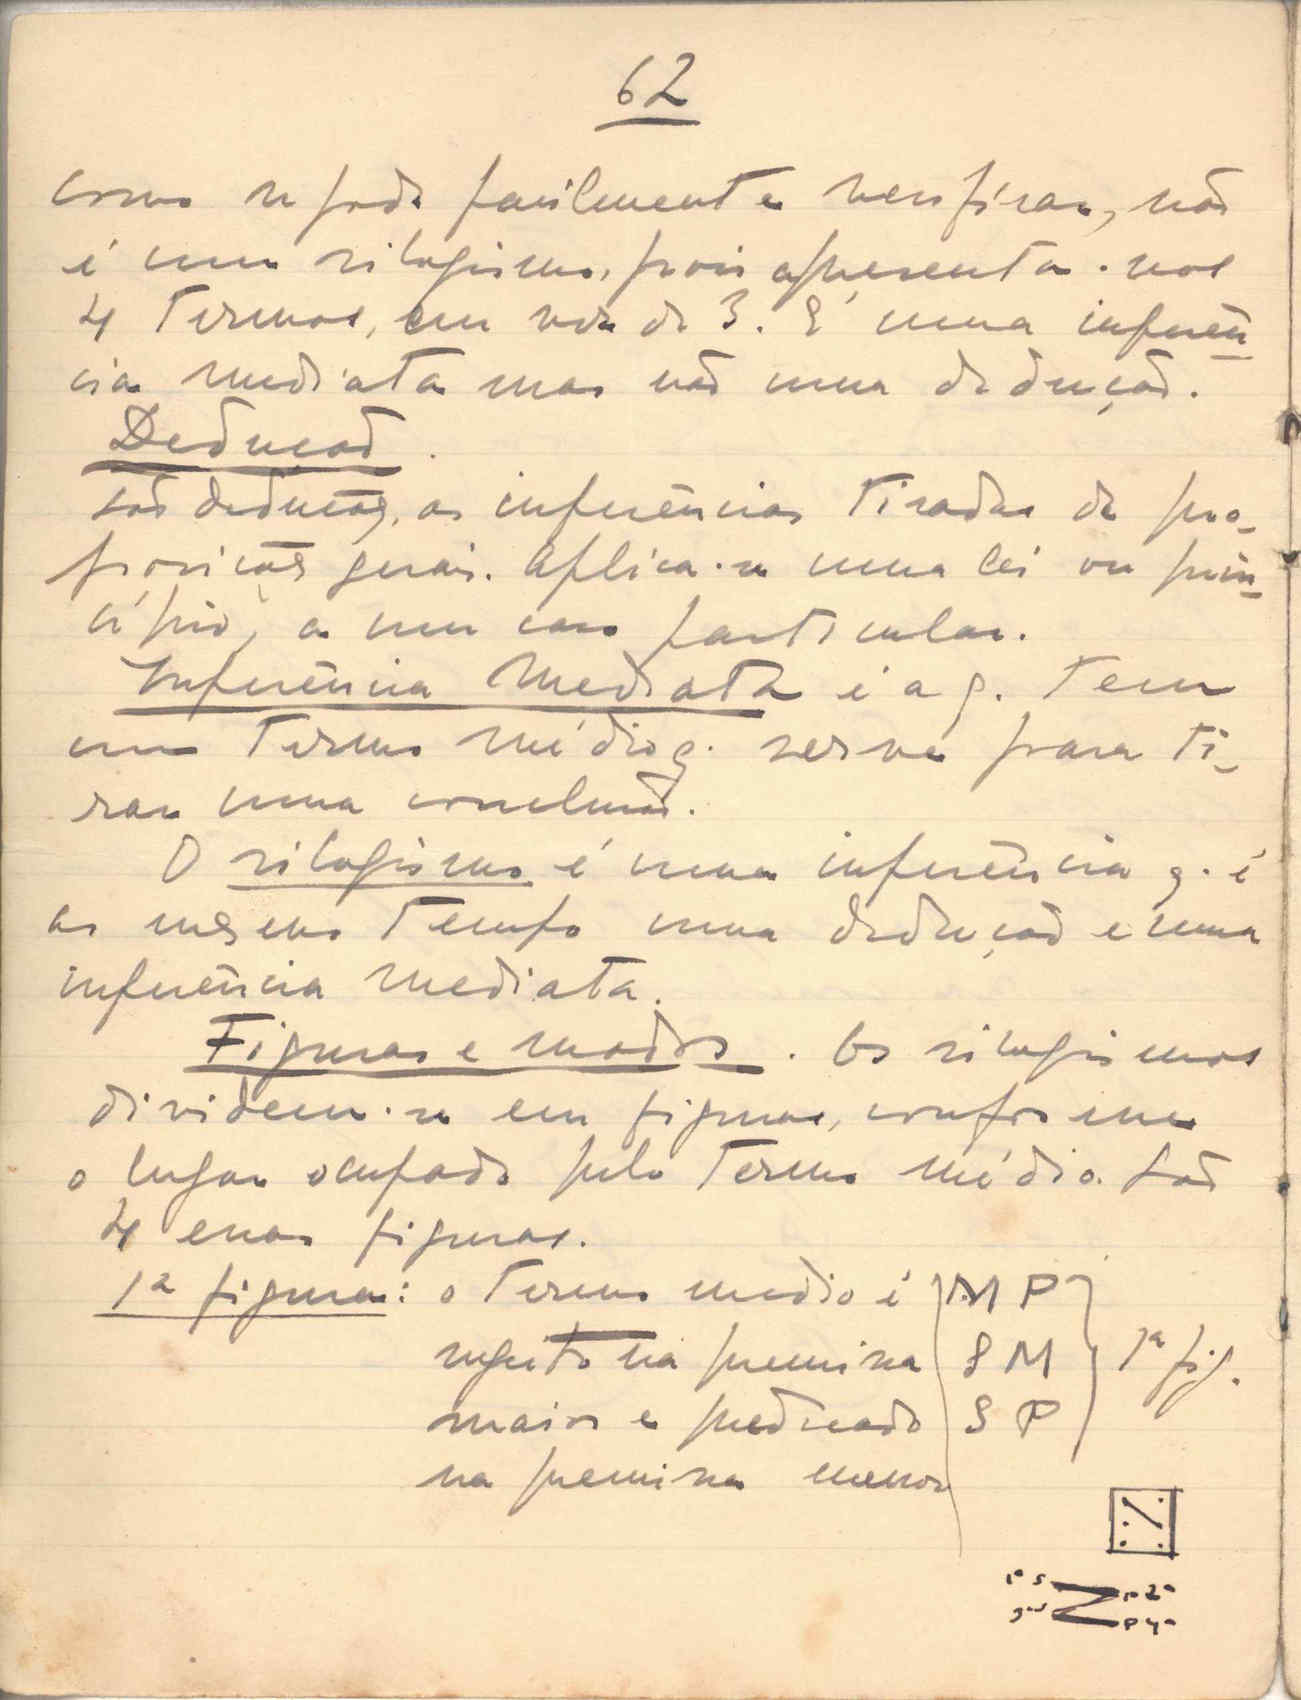 62
como se pode facilmente verificar, não
é um silogismo, pois apresenta-nos
4 termos, em vez de 3. É uma inferên
cia mediata mas não uma dedução.
Dedução.
são deduções, as inferências tiradas de pro-
posições gerais. Aplica-se uma lei ou prin-
cípio, a um caso particular.
Inferência Mediata é a q. tem
um termo médio q. serve para ti-
rar uma conclusão.
O silogismo é uma inferência q. é
ao mesmo tempo uma dedução e uma
inferência mediata.
Figuras e modos. Os silogismos
dividem-se em figuras, conforme
o lugar ocupado pelo termo médio. São
4 essas figuras.
1ª figura: o termo medio é
sujeito na premissa
maior e predicado
na premissa menor
M P
S M
S P
1ª fig.